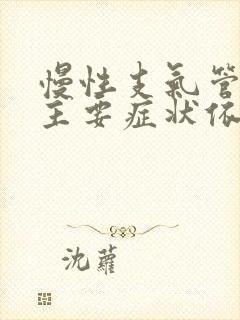 慢性支氣管
主要症狀依
沈蘿